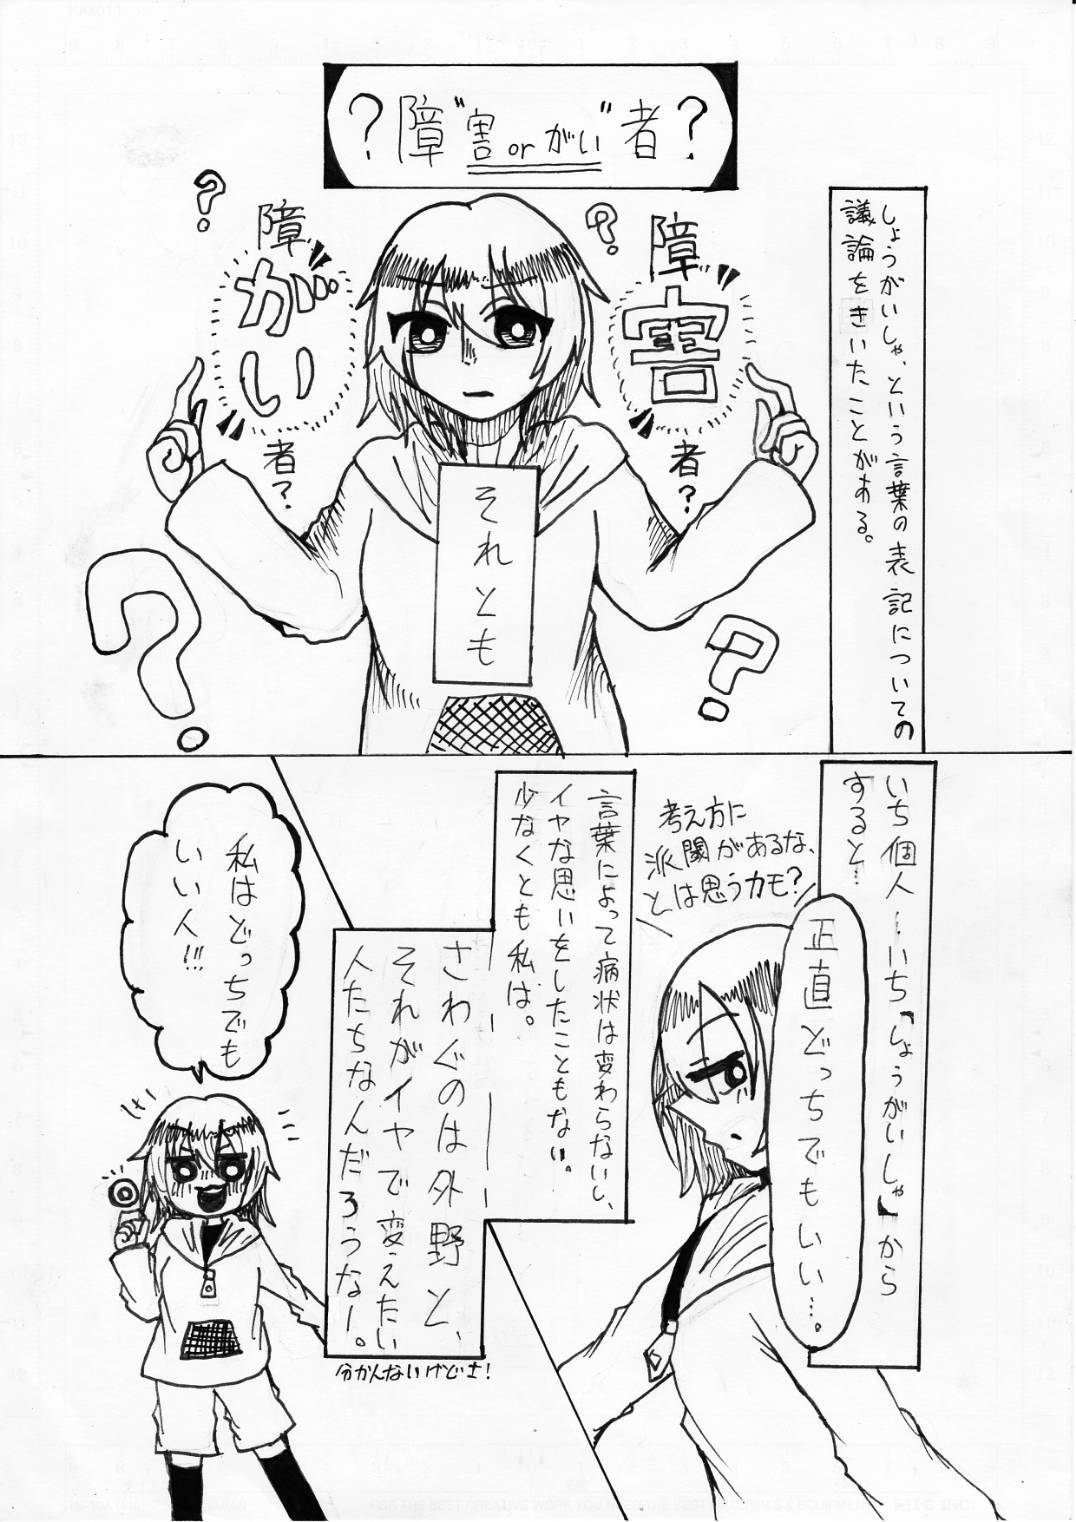 ？障"害 or がい"者？
しょうがいしゃ、という言葉の表記についての
議論をきいたことがある。
障
害
者？
それとも
障
がい
者？
いち個人――いち「しょうがいしゃ」から
すると…
正直どっちでもいい…。
考え方に
派閥があるな、
とは思うカモ？
言葉によって病状は変わらないし、
イヤな思いをしたこともない。
少なくとも私は。
さわぐのは外野と、
それがイヤで変えたい
人たちなんだろうなー。
分かんないけどさ！
私はどっちでも
いい人!!!